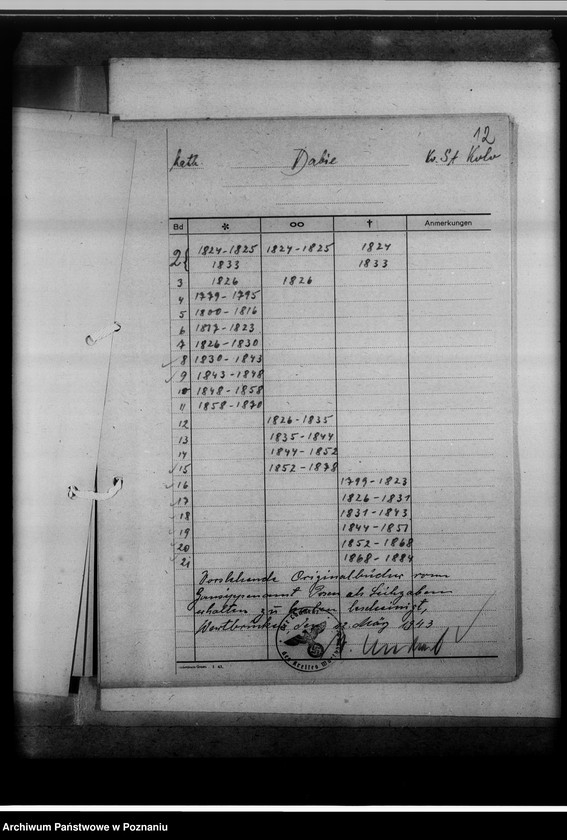 12
kath. Dabie Kr. St Kolo
Bd * ∞ † Anmerkungen
2{ 1824-1825 1824-1825 1824
1833 1833
3 1826 1826
4 1779-1795
5 1800-1816
6 1817-1823
7 1826-1830
8 1830-1843
9 1843-1848
10 1848-1858
11 1858-1870
12 1826-1835
13 1835-1844
14 1844-1852
15 1852-1878
16 1799-1823
17 1826-1831
18 1831-1843
19 1844-1851
20 1852-1868
21 1868-1884
Vorstehende Originalbücher vom
Gausippenamt Posen als Leihgaben
erhalten zu haben bescheinigt,
Wartbrücken, den März 1943
des Kreises
Archiwum Państwowe w Poznaniu